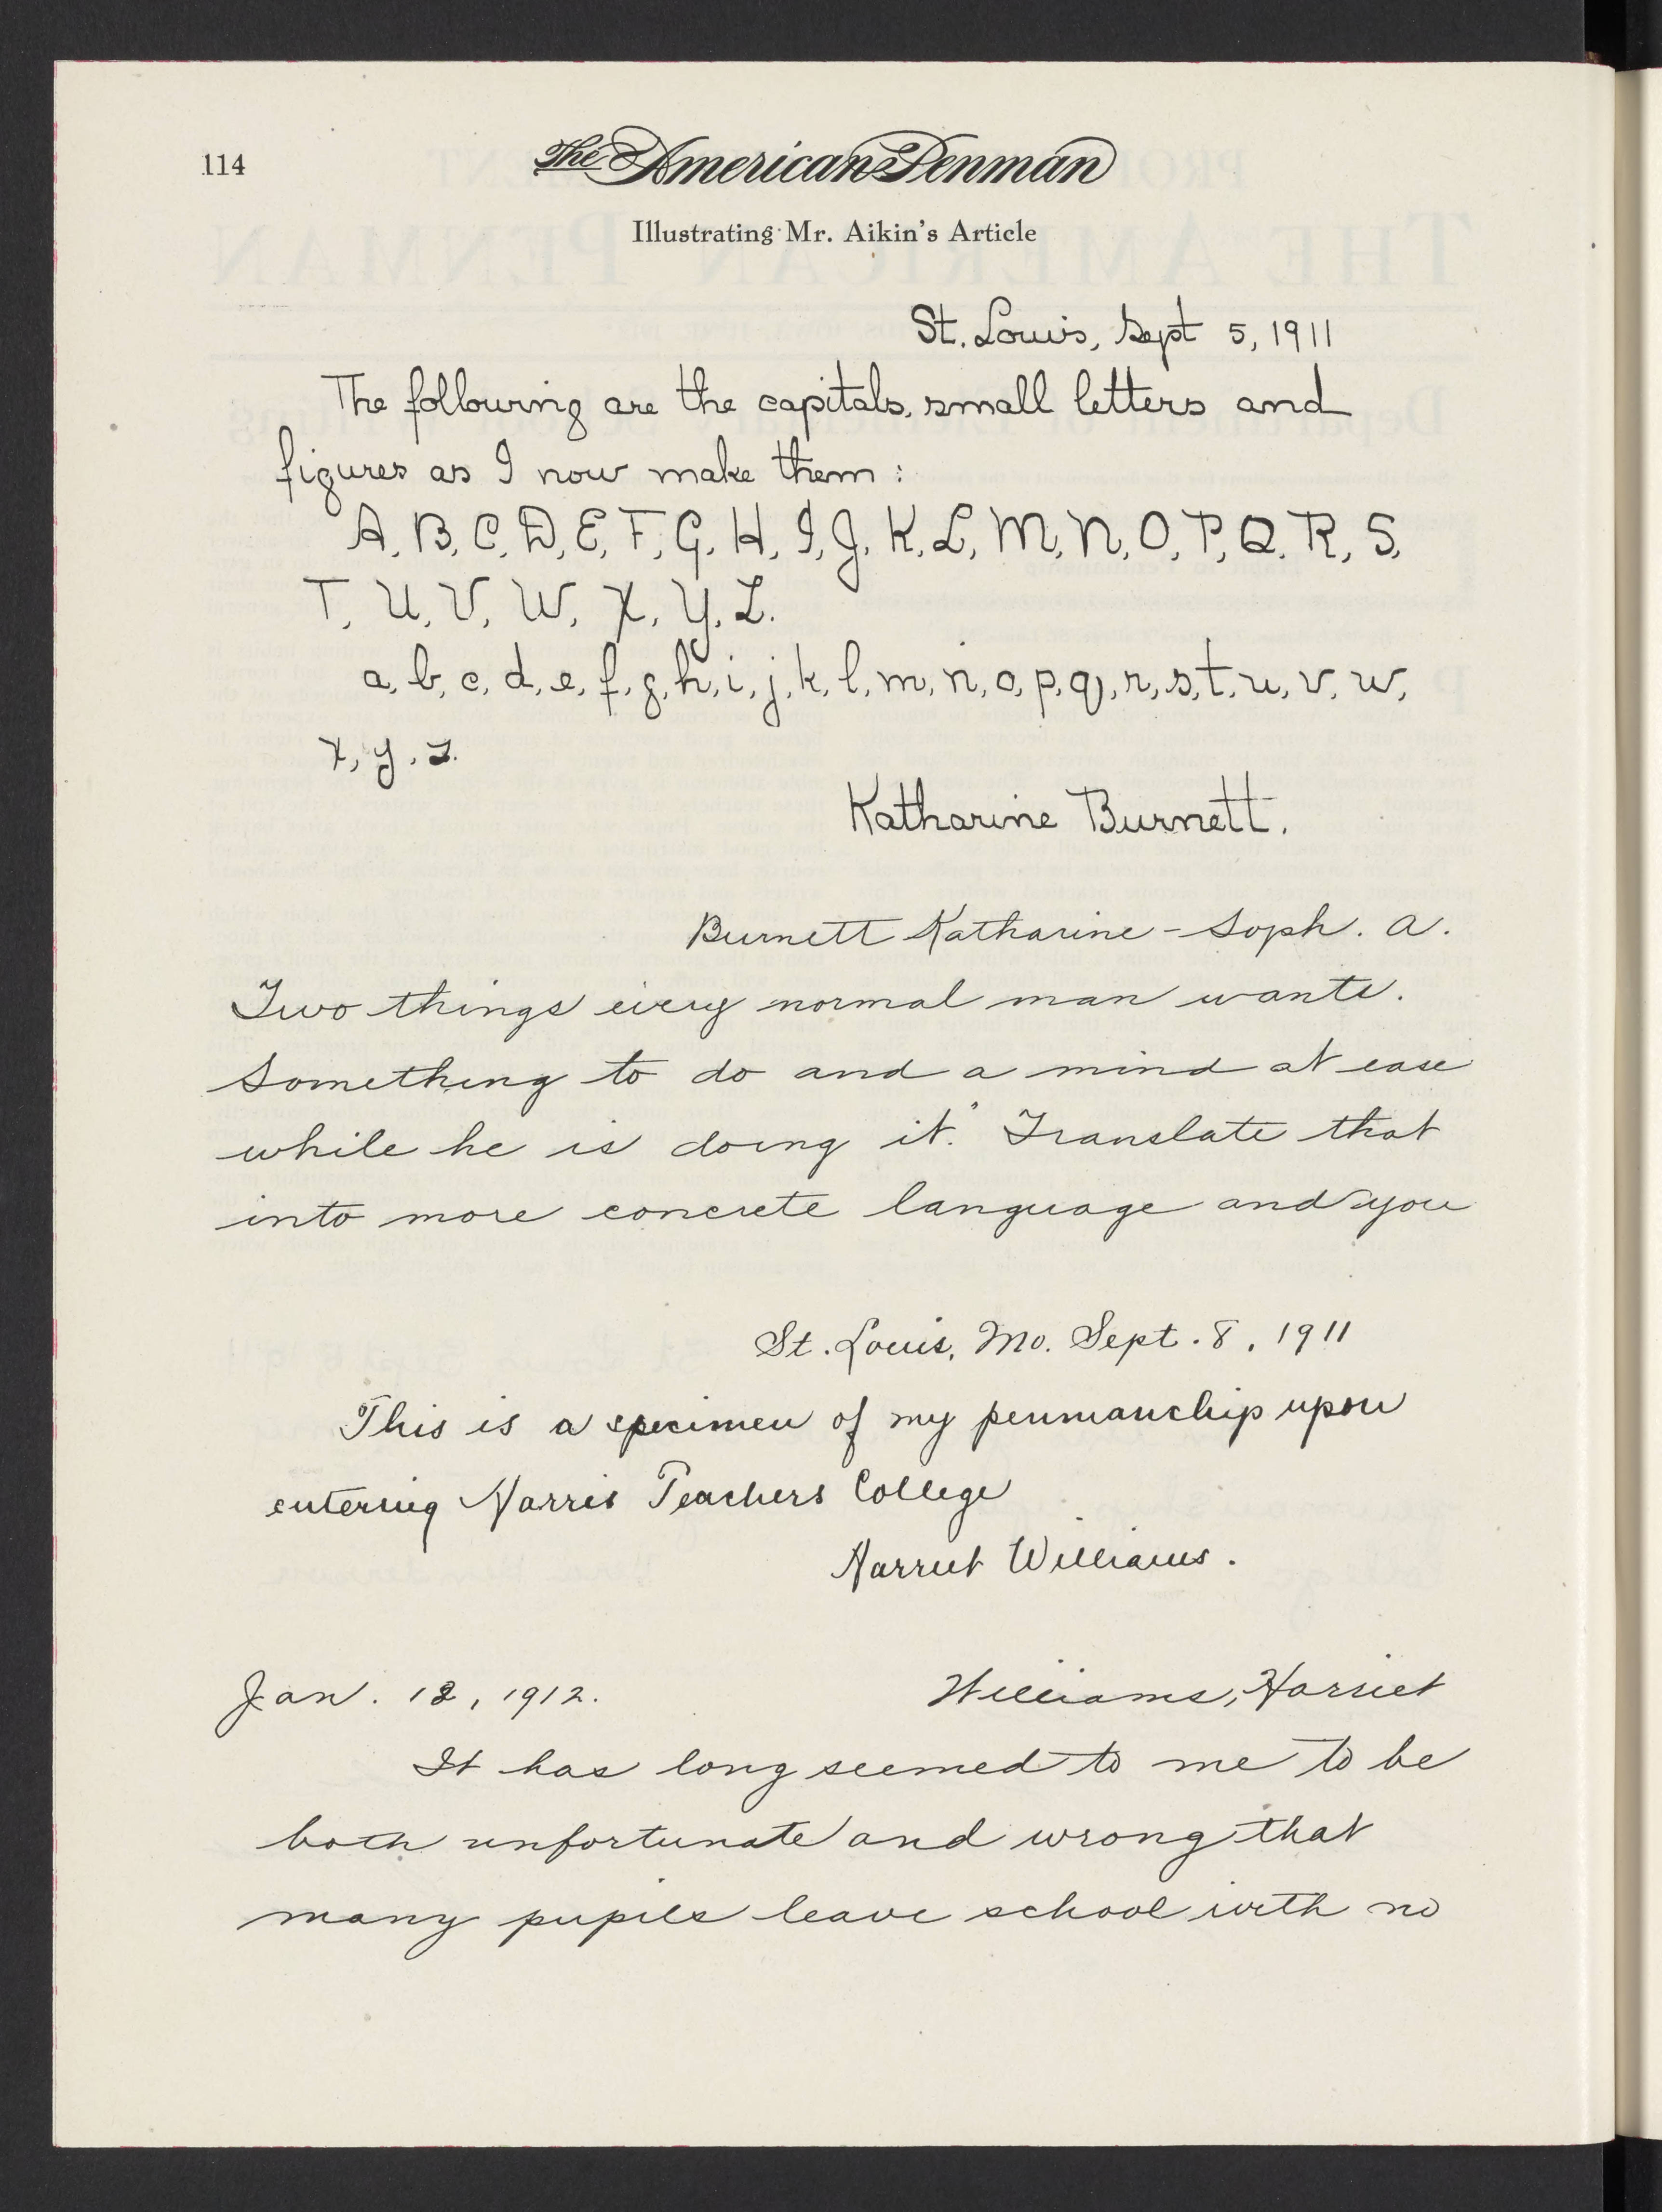 114
The American Penman
Illustrating Mr. Aikin's Article
St. Louis, Sept 5, 1911
The following are the capitals, small letters and
figures as I now make them:
A, B, C, D, E, F, G, H, I, J, K, L, M, N, O, P, Q, R, S,
T, U, V, W, X, Y, Z.
a, b, c, d, e, f, g, h, i, j, k, l, m, n, o, p, q, r, s, t, u, v, w,
x, y, z.
Katharine Burnett.
Burnett Katharine - Soph. A.
Two things every normal man wants.
Something to do and a mind at ease
while he is doing it." Translate that
into more concrete language and you
St. Louis, Mo. Sept. 8, 1911
This is a specimen of my penmanship upon
entering Harris Teachers College
Harriet Williams.
Jan. 12, 1912.
Williams, Harriet
It has long seemed to me to be
both unfortunate and wrong that
many pupils leave school with no